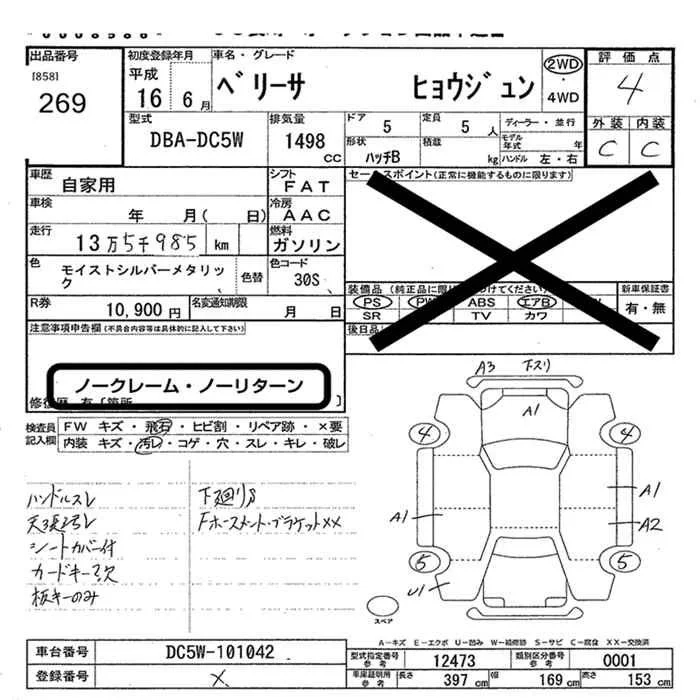 出品番号
[858]
269
初度登録年月
平成
16年 6月
車名・グレード
ベリーサ ヒョウジュン
2WD
・
4WD
評価点
4
外装 内装
C C
型式
DBA-DC5W
排気量
1498
CC
ドア
5
定員
5 人
形状
ハッチB
積載
kg
ディーラー・並行
モデル
年式 年
ハンドル 左・右
車歴
自家用
シフト
FAT
車検
年 月( 日)
冷房
AAC
走行
13万5千985 km
燃料
ガソリン
色
モイストシルバーメタリッ
ク
色替
色コード
30S
R券
10,900 円
名変通知期限
月 日
セールスポイント(正常に機能するものに限ります)
装備品
PS
ABS
エアB
SR
TV
カワ
新車保証書
有・無
後日品
注意事項申告欄(不具合内容等は具体的に記入して下さい)
ノークレーム・ノーリターン
修復歴 有
検査員
記入欄
FW キズ・飛石・ヒビ割・リペア跡・×要
内装 キズ・汚レ・コゲ・穴・スレ・キレ・破レ
ハンドルスレ
シートカバー付
カードキー欠
板キーのみ
下廻りS
A3 下スリ
A1
4 4
A1
A1
A2
5 5
U1
スペア
A－キズ E－エクボ U－凹み W－補修跡 S－サビ C－腐食 XX－交換済
車台番号
DC5W-101042
登録番号
×
型式指定番号
参考
12473
類別区分番号
参考
0001
車庫証明用
参考
長さ
397 cm
幅
169 cm
高さ
153 cm